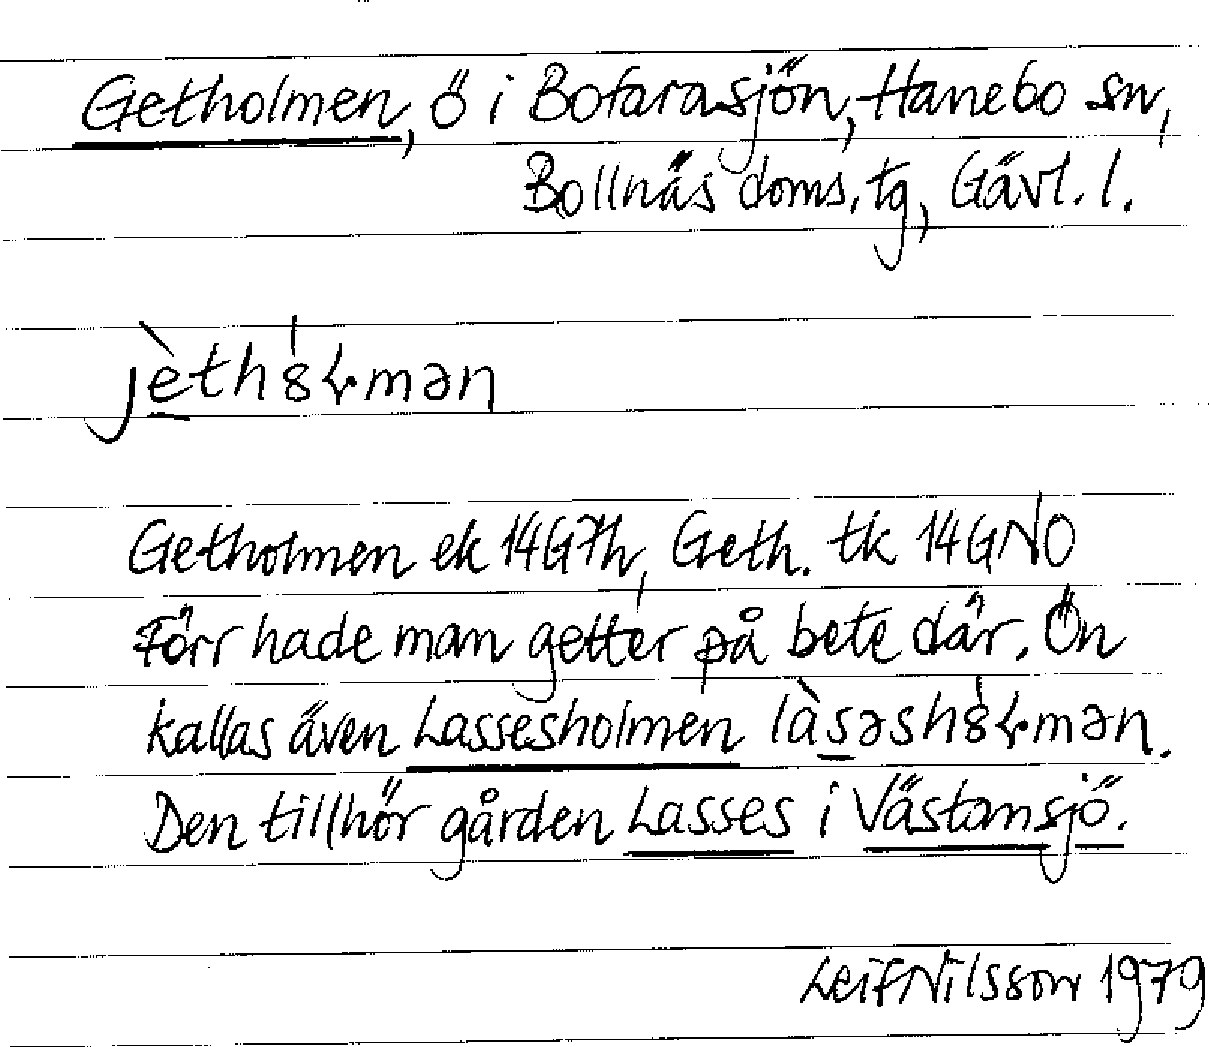 Getholmen, ö i Bofarasjön, Hanebo sn,
Bollnäs doms. tg, Gävl. l.
jèth8̍ɬmən
Getholmen ek 14G7h, Geth. tk 14GNO
Förr hade man getter på bete där. Ön
kallas även Lassesholmen làsəsh8̍ɬmən.
Den tillhör gården Lasses i Västansjö.
Leif Nilsson 1979